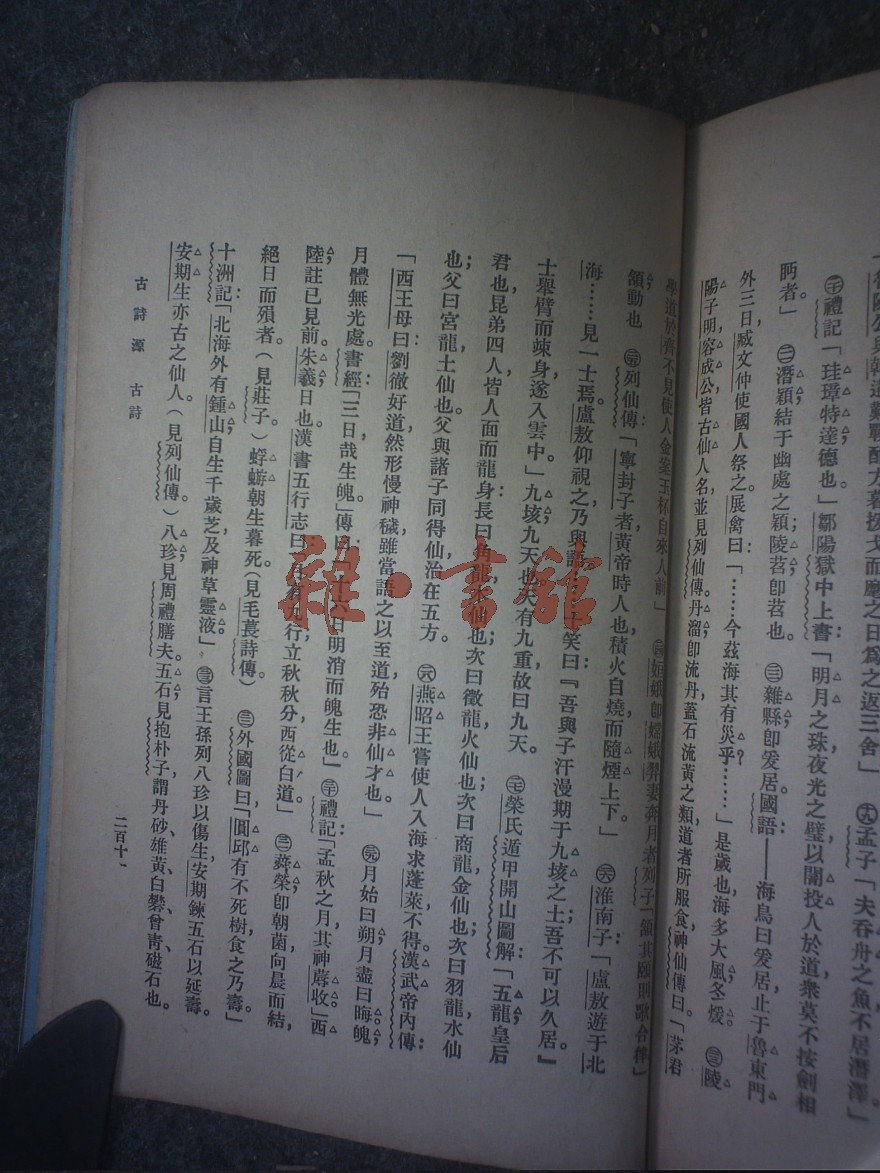 孟子「夫吞舟之魚不居潛澤」
㊁禮記「珪璋特達德也」鄒陽獄中上書：「明月之珠，夜光之璧，以闇投人於道，衆莫不按劍相
眄者」 ㊂潛穎結于幽處之穎；陵苕，卽苕也。 雜縣卽爰居。國語——海鳥曰爰居，止于魯東門
外三日，臧文仲使國人祭之。展禽曰：「……今茲海其有災乎？……」是歲也，海多大風，冬煖。 陵
陽子明容成公皆古仙人名，並見列仙傳。丹溜卽流丹，蓋石流黃之類，道者所服食，神仙傳曰：「茅君
學道於齊，不見使人，金案玉杯，自來人前」 姮娥卽嫦娥，羿妻奔月者。列子「領其頤則歌合律」
頷動也 列仙傳：「寧封子者，黃帝時人也，積火自燒，而隨煙上下。」 淮南子：「盧敖遊于北
海……見一士焉，盧敖仰視之，乃與語，士笑曰：『吾與子汗漫期于九垓之上，吾不可以久居。』
士舉臂而竦身，遂入雲中。」九垓，九天也，天有九重，故曰九天。 榮氏遁甲開山圖解：「五龍，皇后
君也，昆弟四人，皆人面而龍身，長曰角龍，木仙也；次曰徵龍，火仙也；次曰商龍，金仙也；次曰羽龍，水仙
也；父曰宮龍，土仙也。父與諸子同得仙，治在五方。 燕昭王嘗使人入海求蓬萊，不得。漢武帝內傳：
「西王母曰：劉徹好道，然形慢神穢，雖當語之以至道，殆恐非仙才也。」 月始曰朔，月盡曰晦，魄，
月體無光處。書經：「三日哉生魄。」傳曰：「十六日明消而魄生也。」 禮記「孟秋之月，其神蓐收」西
陸註已見前。朱羲，日也。漢書五行志曰：「日有九行，立秋秋分，西從白道。」 蕣榮卽朝菌，向晨而結，
絕日而殞者（見莊子）蜉蝣朝生暮死（見毛萇詩傳） 外國圖曰：「圓邱有不死樹，食之乃壽。」
十洲記：「北海外有鍾山，自生千歲芝及神草靈液」 言王孫列八珍以傷生，安期鍊五石以延壽。
安期生亦古之仙人。（見列仙傳）八珍，見周禮膳夫。五石，見抱朴子，謂丹砂、雄黃、白礬、曾青、磁石也。
古詩源 古詩
二百十一
雜·書館